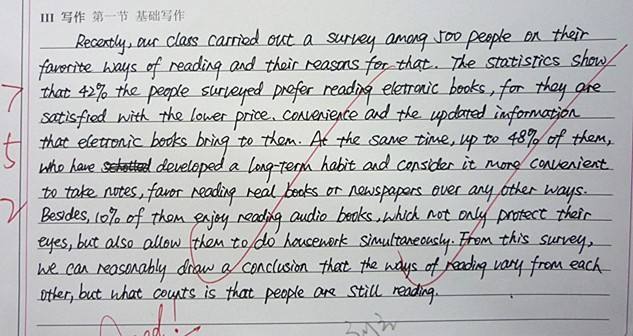 III 写作 第一节 基础写作
Recently, our class carried out a survey among 500 people on their
favorite ways of reading and their reasons for that. The statistics show
7 that 42% the people surveyed prefer reading eletronic books, for they are
satisfied with the lower price, convenience and the updated information
5 that eletronic books bring to them. At the same time, up to 48% of them,
who have developed a long-term habit and consider it more convenient
to take notes, favor reading real books or newspapers over any other ways.
2 Besides, 10% of them enjoy reading audio books, which not only protect their
eyes, but also allow them to do housework simultaneously. From this survey,
we can reasonably draw a conclusion that the ways of reading vary from each
other, but what counts is that people are still reading.